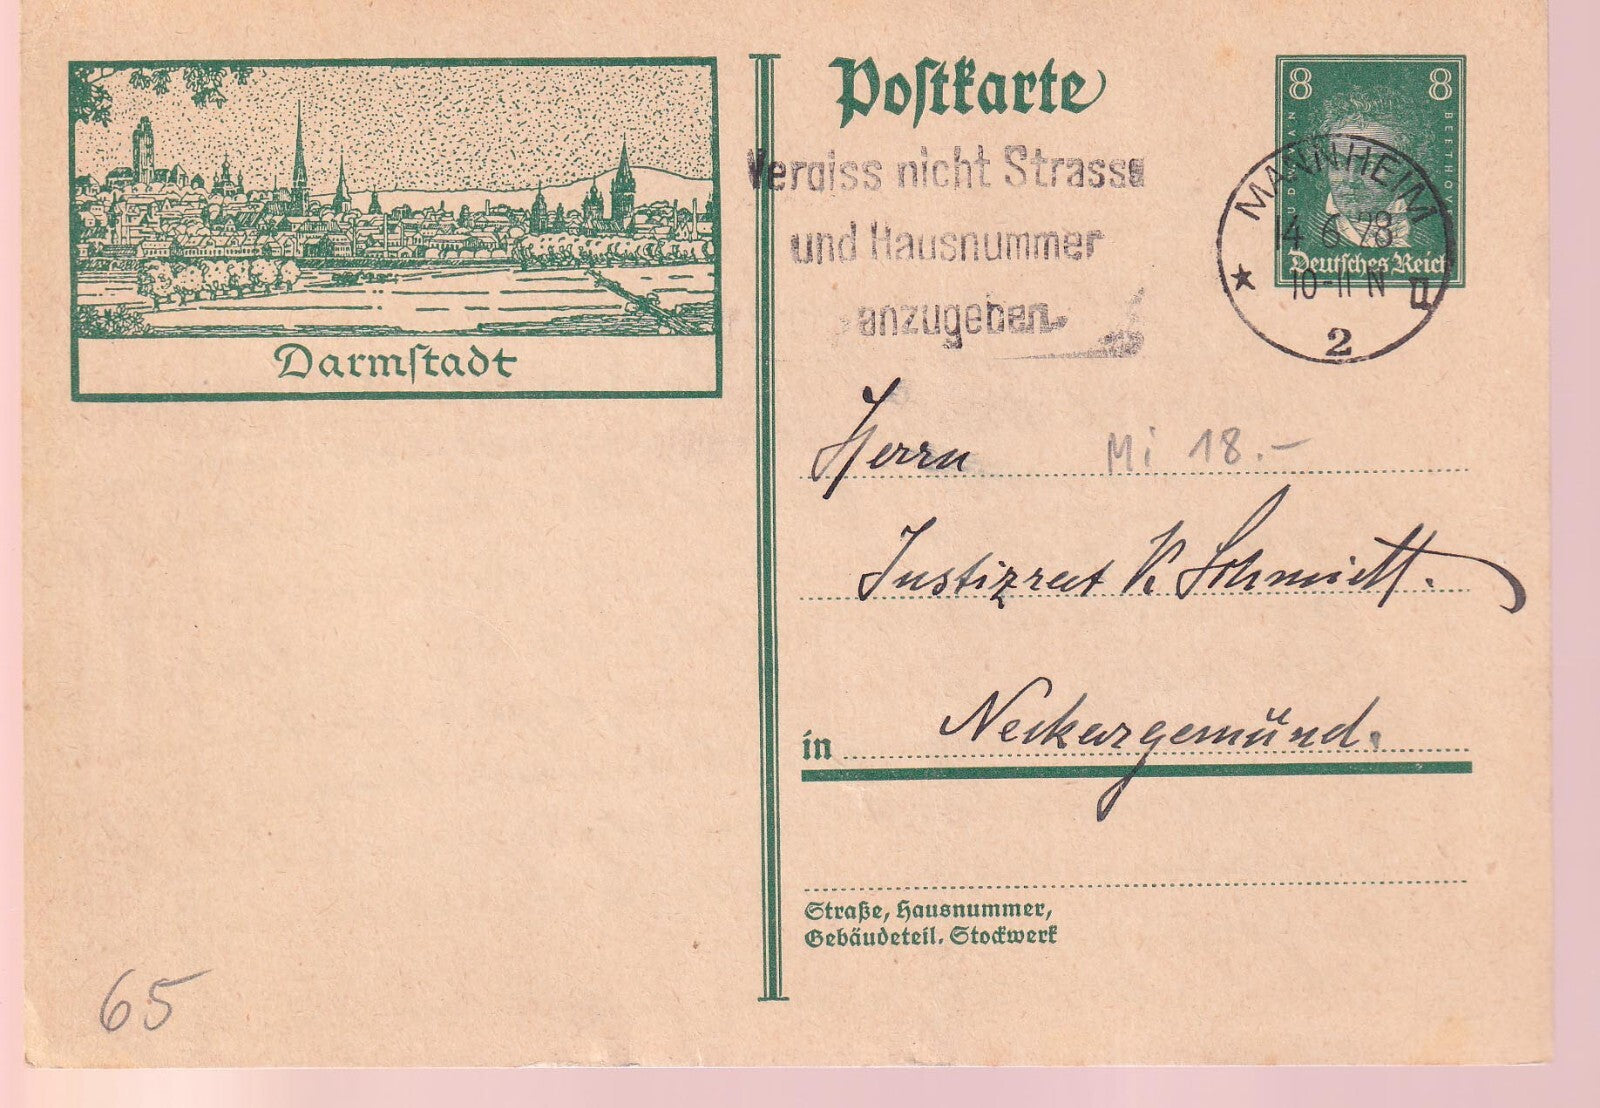 Darmstadt
65
Postkarte
8 8
BEETHOVEN
Deutsches Reich
MANNHEIM
14.6.28
10-11 N
2
Vergiss nicht Strasse
und Hausnummer
anzugeben
Mi 18.-
Herrn
Justizrat K. Schmidt.
in Neckargemünd.
Straße, Hausnummer,
Gebäudeteil, Stockwerk